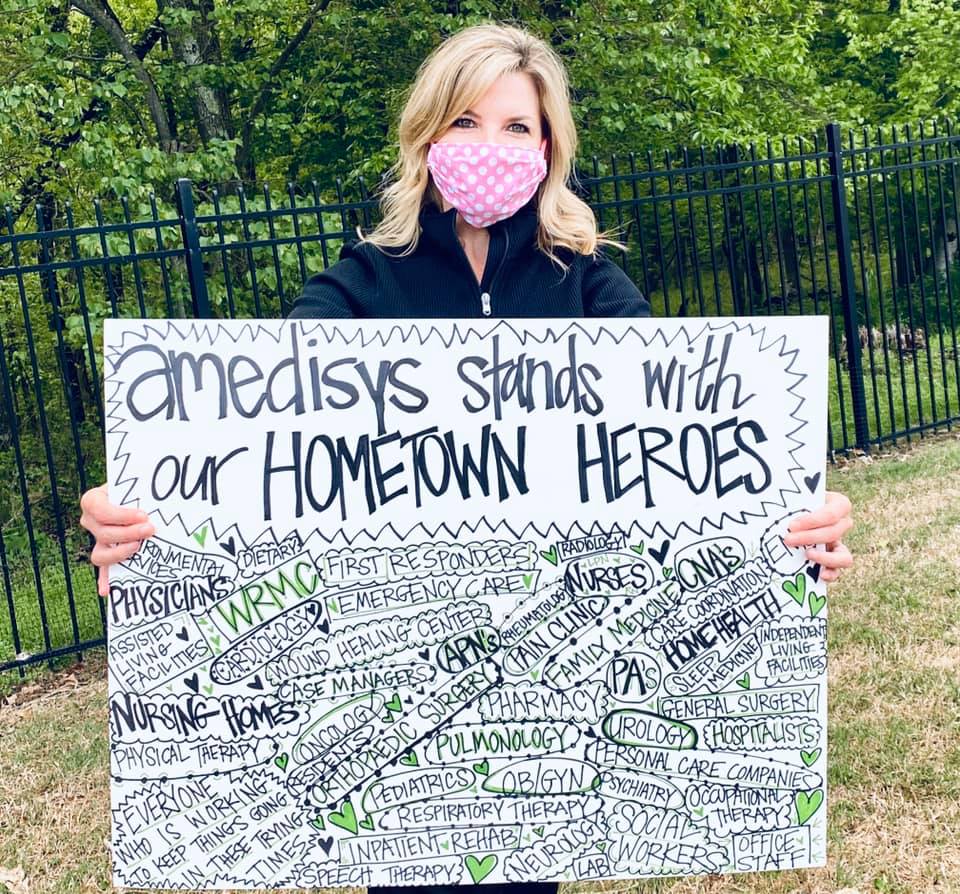 amedisys stands with
our HOMETOWN HEROES
DIETARY
PHYSICIANS
WRMC
FIRST RESPONDERS
EMERGENCY CARE
RADIOLOGY
LPN
NURSES
CNA's
ASSISTED
LIVING
FACILITIES
CARDIOLOGY
WOUND HEALING CENTER
CASE MANAGERS
APN's
RHEUMATOLOGY
PAIN CLINIC
FAMILY MEDICINE
CARE COORDINATION
HOME HEALTH
PA's
SLEEP
MEDICINE
INDEPENDENT
LIVING
FACILITIES
NURSING HOMES
PHYSICAL THERAPY
ONCOLOGY
RESIDENTS
ORTHOPAEDIC SURGERY
PHARMACY
PULMONOLOGY
GENERAL SURGERY
UROLOGY
HOSPITALISTS
PERSONAL CARE COMPANIES
PEDIATRICS
OB/GYN
PSYCHIATRY
OCCUPATIONAL
THERAPY
EVERYONE
WHO IS WORKING
TO KEEP THINGS GOING
IN THESE TRYING
TIMES
RESPIRATORY THERAPY
INPATIENT REHAB
SPEECH THERAPY
NEUROLOGY
LAB
SOCIAL
WORKERS
OFFICE
STAFF